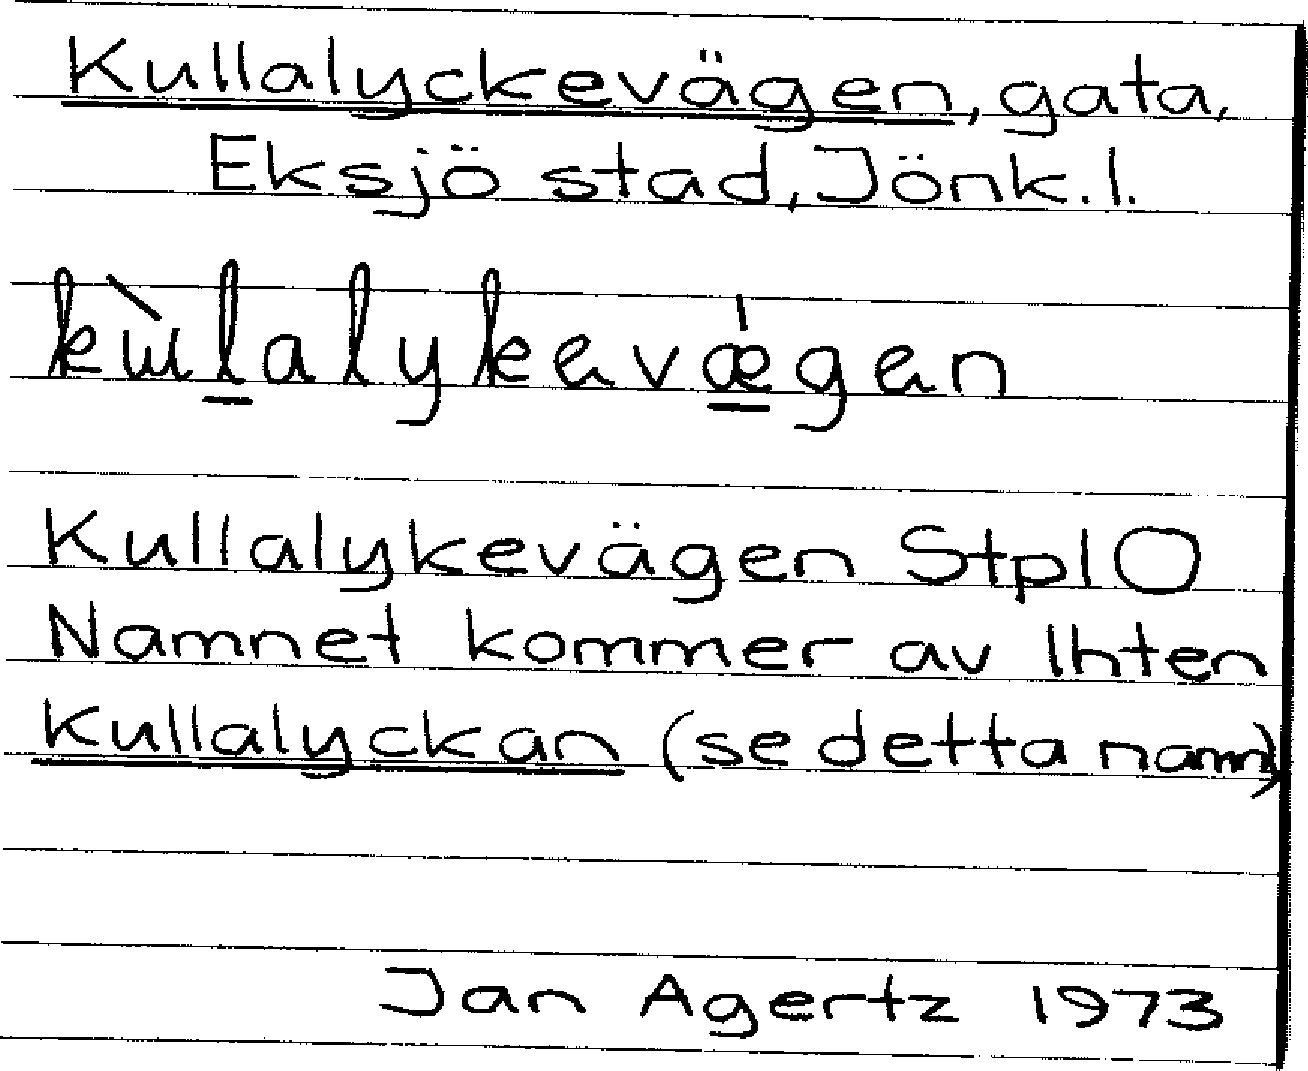 Kullalyckevägen, gata,
Eksjö stad, Jönk. l.
kɯ̀lalykevǽgen
Kullalykevägen Stpl O
Namnet kommer av lhten
Kullalyckan (se detta namn)
Jan Agertz 1973